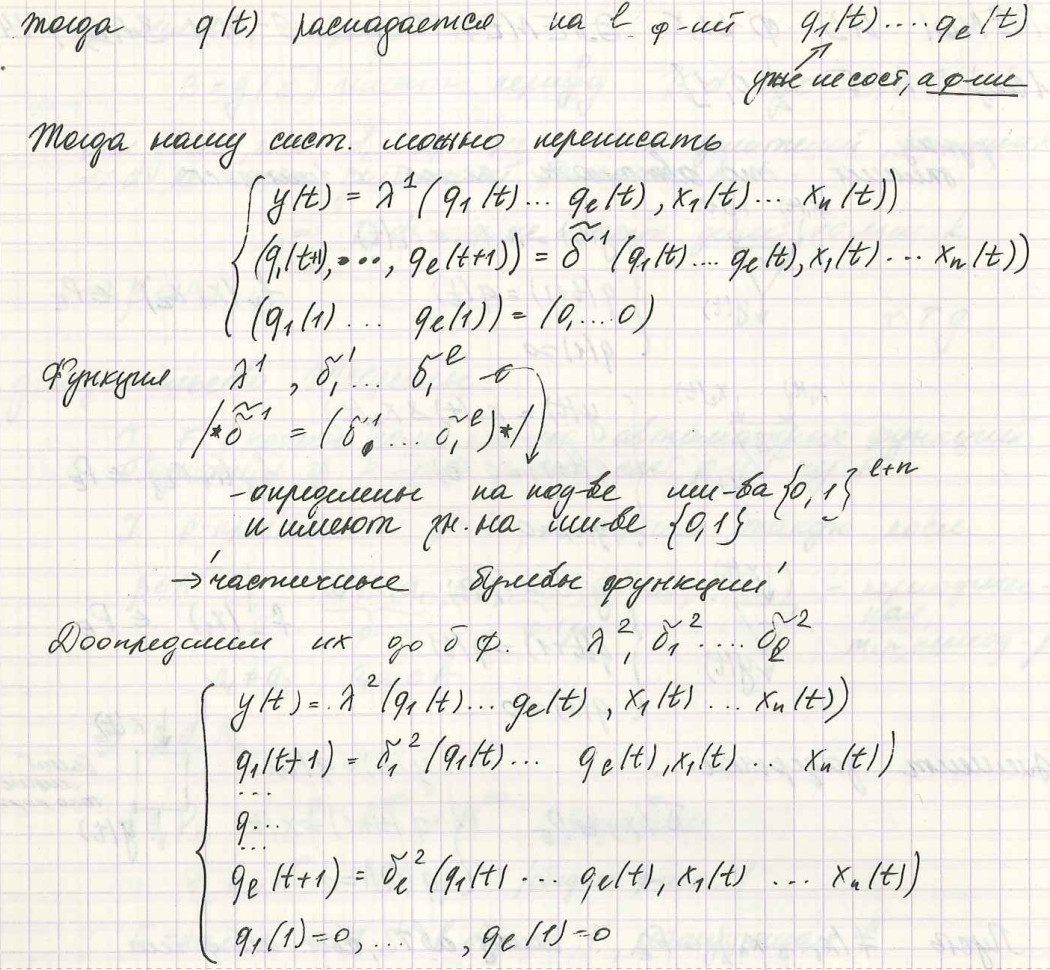 тогда q(t) распадается на l ф-ий q₁(t) .... qₑ(t)
уже не сост, а ф-ии
Тогда нашу сист. можно переписать
y(t) = λ¹(q₁(t) ... qₑ(t), x₁(t) ... xₙ(t))
(q₁(t+1), ..., qₑ(t+1)) = δ̃¹(q₁(t) .... qₑ(t), x₁(t) ... xₙ(t))
(q₁(1) ... qₑ(1)) = (0, ... 0)
Функция λ¹, δ₁¹ ... δ₁ˡ
/* δ̃¹ = (δ̃₁¹ ... δ̃₁ˡ) */
- определены на под-ве мн-ва {0,1}ˡ⁺ⁿ
и имеют зн. на мн-ве {0,1}
→ частичные булевы функции
Доопределим их до б.ф. λ², δ̃₁² .... δ̃ₑ²
y(t) = λ²(q₁(t) ... qₑ(t), x₁(t) ... xₙ(t))
q₁(t+1) = δ̃₁²(q₁(t) ... qₑ(t), x₁(t) ... xₙ(t))
...
q...
...
qₑ(t+1) = δ̃ₑ²(q₁(t) ... qₑ(t), x₁(t) ... xₙ(t))
q₁(1)=0, ... , qₑ(1)=0